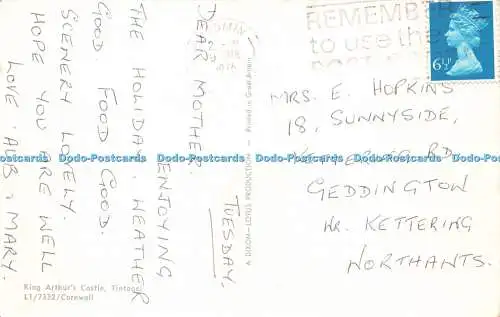 TUESDAY.
DEAR MOTHER.
ENJOYING
THE HOLIDAY. WEATHER
GOOD. FOOD GOOD.
SCENERY LOVELY.
HOPE YOU ARE WELL
LOVE. AUB. MARY.
King Arthur's Castle, Tintagel
L1/7332/Cornwall
A DIXON-LOTUS PRODUCTION — Printed in Great Britain
REMEMBER
to use the
6½P
MRS. E. HOPKINS
18, SUNNYSIDE,
KETTERING RD,
GEDDINGTON
NR. KETTERING
NORTHANTS.
Dodo-Postcards Dodo-Postcards Dodo-Postcards Dodo-Postcards Dodo-Postcards